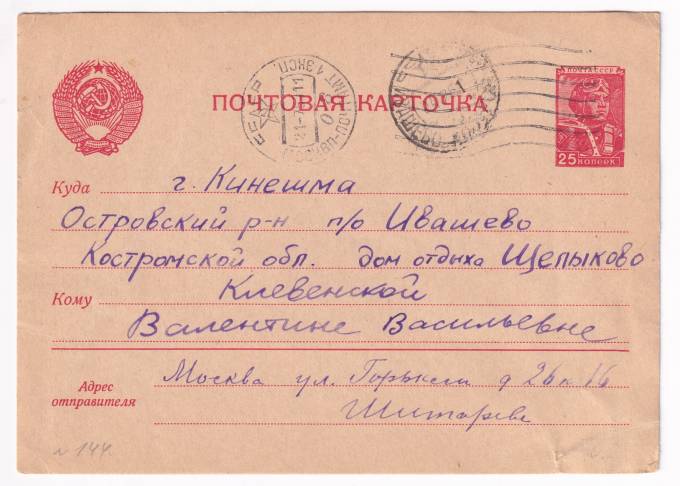 ПОЧТА СССР
ПОЧТОВАЯ КАРТОЧКА
25 КОПЕЕК
Куда г. Кинешма
Островский р-н п/о Ивашево
Костромской обл. дом отдыха Щелыково
Кому Клевенской
Валентине Васильевне
Адрес отправителя
Москва ул. Горького д 26 к 16
N 144.